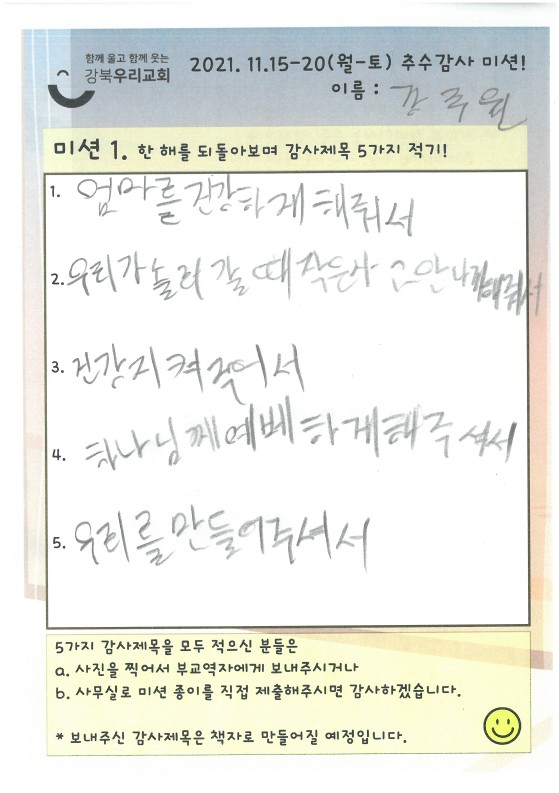 함께 울고 함께 웃는
강북우리교회
2021. 11.15-20(월-토) 추수감사 미션!
이름 : 김주원
미션 1. 한 해를 되돌아보며 감사제목 5가지 적기!
1. 엄마를 건강하게 해줘서
2. 우리가 놀러 갈 때 사고 안나게해줘서
3. 건강지켜줘서
4. 하나님께 예베하게해주셔서
5. 우리를 만들어주셔서
5가지 감사제목을 모두 적으신 분들은
a. 사진을 찍어서 부교역자에게 보내주시거나
b. 사무실로 미션 종이를 직접 제출해주시면 감사하겠습니다.
* 보내주신 감사제목은 책자로 만들어질 예정입니다.